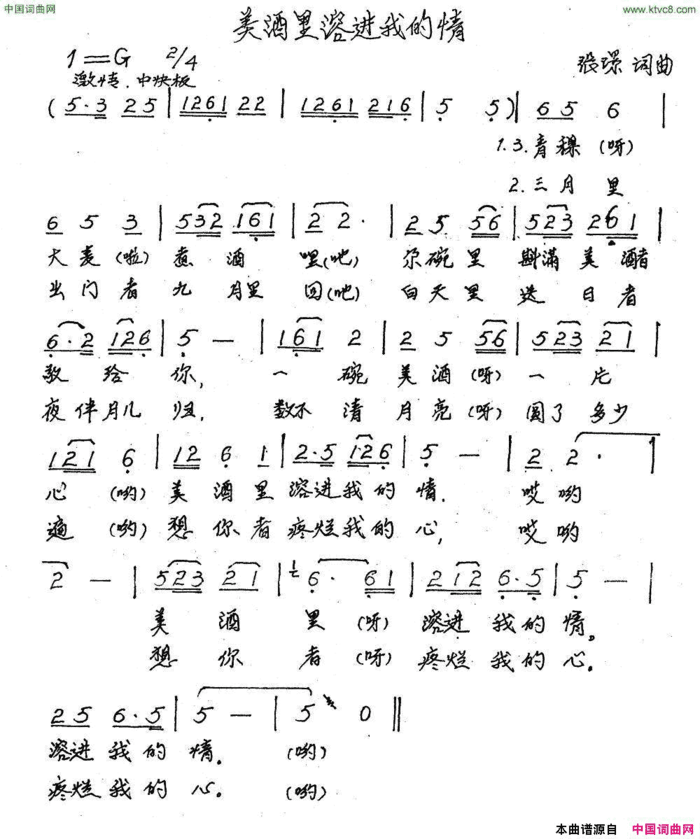 中国词曲网
www.ktvc8.com
美酒里溶进我的情
1=G 2/4
张璟 词曲
激情.中快板
(5·3 25 | 1261 22 | 1261 216 | 5 5) | 65 6 |
1.3.青稞(呀)
2.三月里
6 5 3 | 532 161 | 2 2· | 25 56 | 523 261 |
大麦(啦)煮酒 嘿(吔) 尕碗里 斟满美酷
出门者九月里 回(吔) 白天里 送日者
6·2 126 | 5 — | 161 2 | 2 5 56 | 523 21 |
敬给你, 一碗美酒(呀)一片
夜伴月儿归, 数不清月亮(呀)圆了多少
121 6 | 12 6 1 | 2·5 126 | 5 — | 2 2· |
心(哟)美酒里溶进我的情. 哎哟
遍(哟)想你者疼烂我的心, 哎哟
2 — | 523 21 | 6· 61 | 212 6·5 | 5 — |
美酒里(呀)溶进我的情。
想你者(呀)疼烂我的心.
25 6·5 | 5 — | 5 0 ‖
溶进我的情. (哟)
疼烂我的心. (哟)
本曲谱源自 中国词曲网